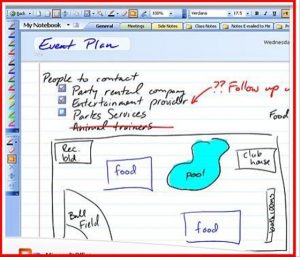 Back
Verdana
17.5
My Notebook
Meetings
Side Notes
Class Notes
Notes E-mailed to Me
Event Plan
Wednesda
People to contact
Party rental company
Entertainment provider
?? Follow up
Parks Services
Animal trainers
Food
Rec. bld.
food
pool
Club house
Ball Field
food